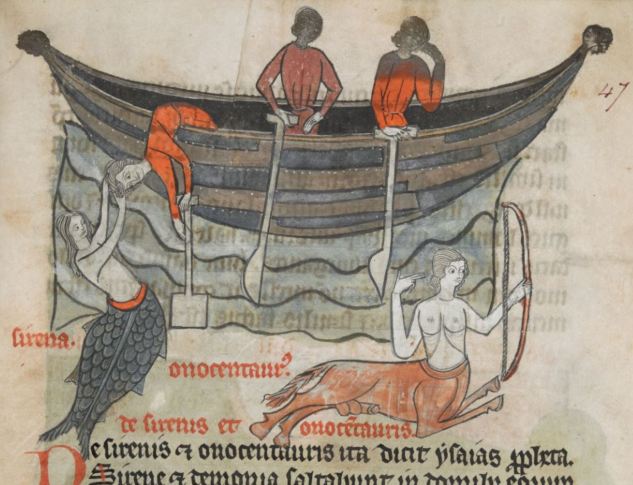 47
sirena.
onocentaur⁹
de sirenis et onocētauris
De sirenis ⁊ onocentauris ita dicit ysaias ꝓpheta.
Sirene ⁊ demonia saltabunt in domib; eorum